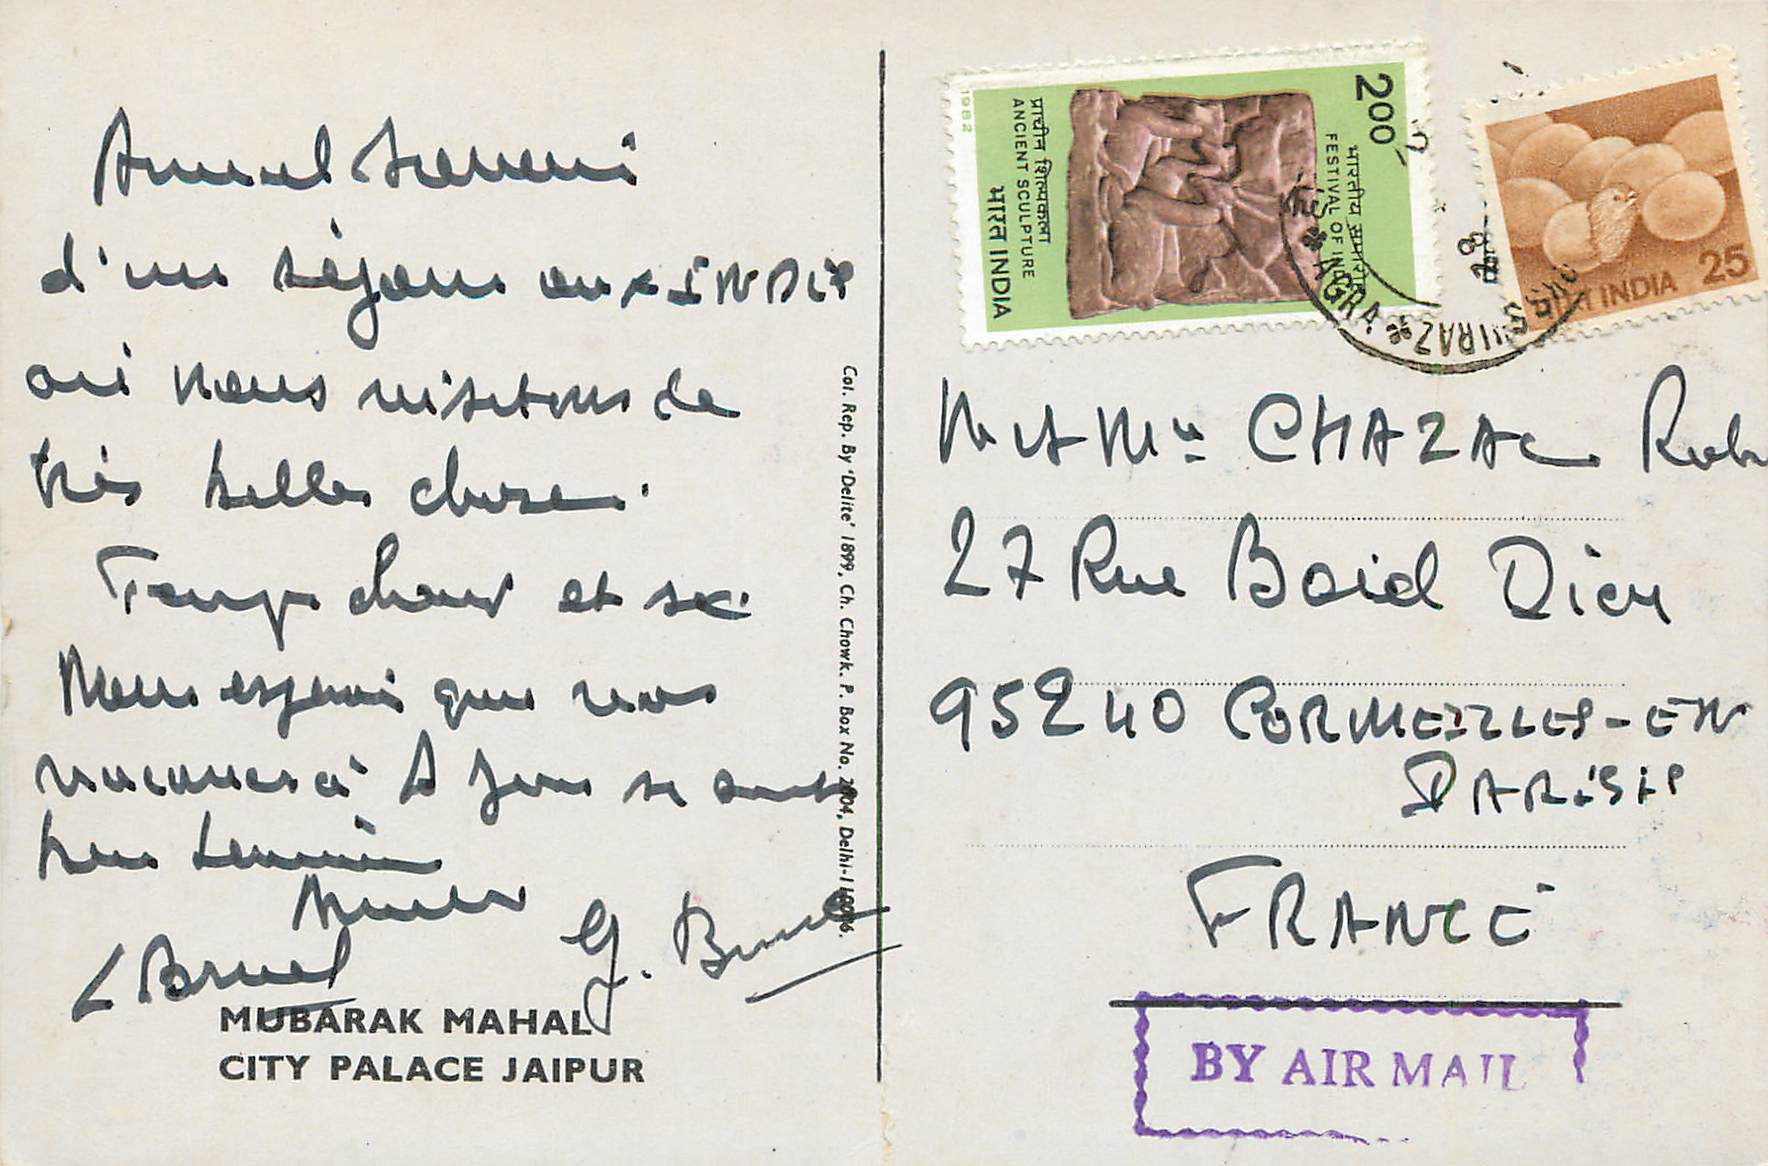 Amical Souvenir
d'un séjour aux INDES
où nous visitons de
très belles choses.
Temps chaud et sec.
Nous espérons que vos
vacances à 
bien terminées
Amitiés
L Bruel G. Bruel
MUBARAK MAHAL
CITY PALACE JAIPUR
Col. Rep. By 'Delite' 1899, Ch. Chowk. P. Box No. 2104, Delhi-110006.
1982
प्राचीन शिल्पकला
ANCIENT SCULPTURE
भारत INDIA
2.00
भारतीय समारोह
FESTIVAL OF INDIA
AGRA
भारत INDIA 25
M et Me CHAZAL
27 Rue Boied Dieu
95240 CORMEILLES-EN
PARISIS
FRANCE
BY AIR MAIL